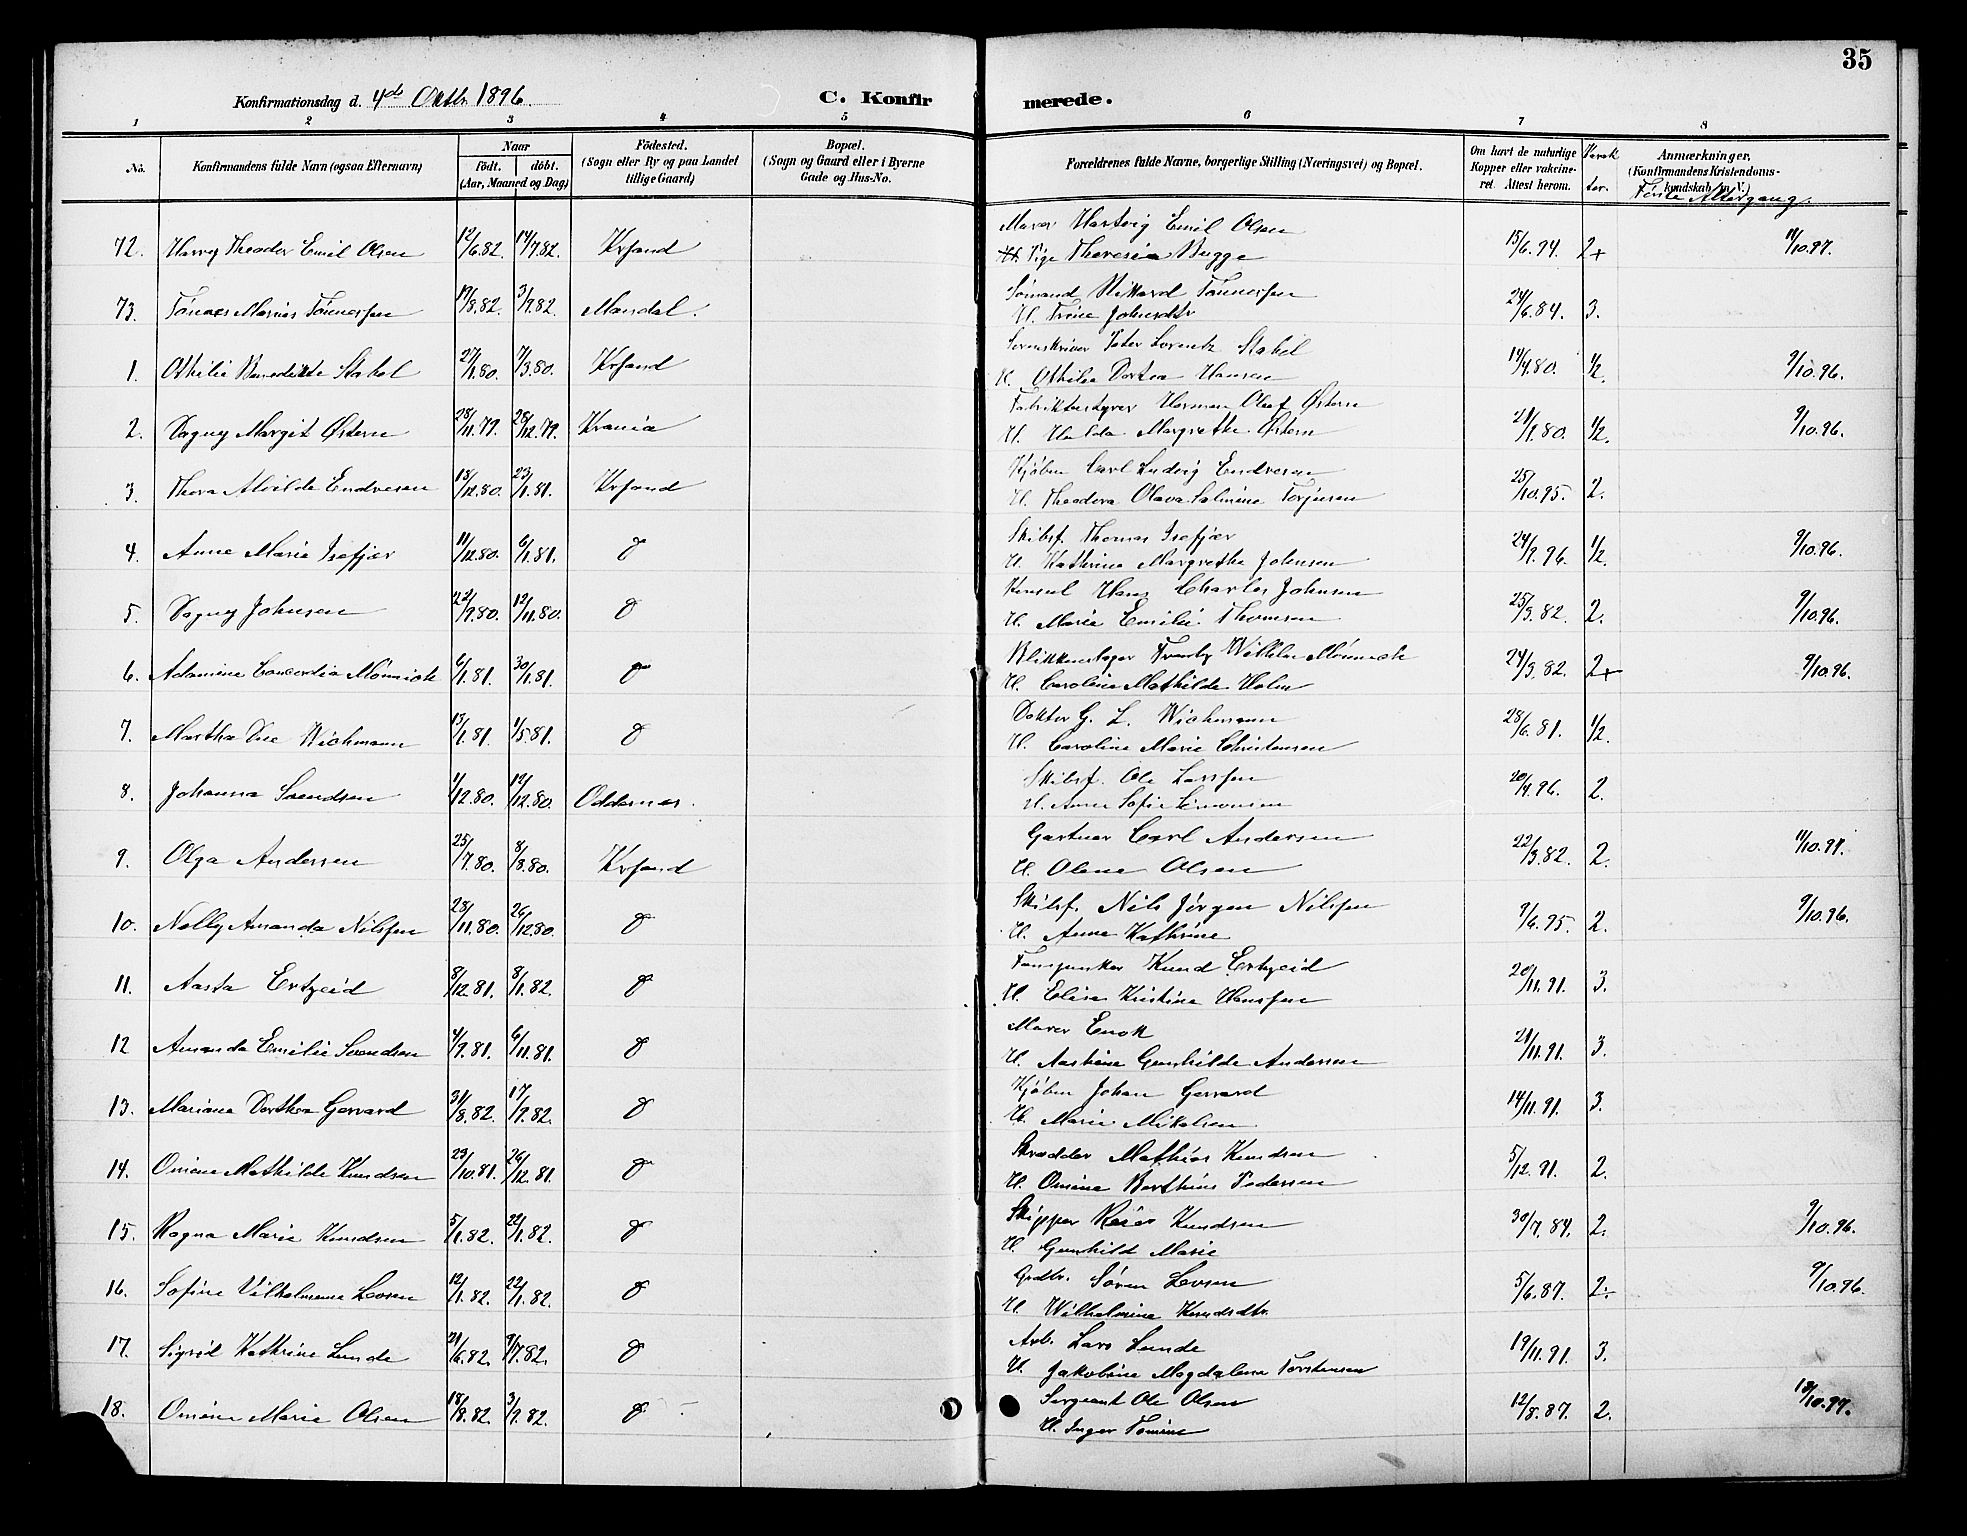 35
Konfirmationsdag d. 4de Oktbr 1896.
C. Konfirmerede.
1 2 3 4 5 6 7 8
No. Konfirmandens fulde Navn (ogsaa Efternavn) Naar födt. döbt. (Aar, Maaned og Dag) Födested. (Sogn eller By og paa Landet tillige Gaard) Bopæl. (Sogn og Gaard eller i Byerne Gade og Hus-No. Forældrenes fulde Navne, borgerlige Stilling (Næringsvei) og Bopæl. Om havt de naturlige Kopper eller vakcineret. Attest herom. Karakter. Anmærkninger, (Konfirmandens Kristendomskundskab m. V.) Første Altergang.
72. Harry Theodor Emil Olsen 12/6.82. 14/7.82. Krsand Maler Hartvig Emil Olsen
Pige Theresia Bugge 15/6.94. 2+ 11/10.97.
73. Tønnes Marius Tønnessen 19/8.82. 3/9.82. Mandal. Sømand Rikard Tønnessen
H. Trine Johnsdtr 24/6.84. 3.
1. Othilie Benedikte Stabel 27/1.80. 7/3.80. Krsand Peter Lorentz Stabel
H. Othilie Dortea Hansen 14/4.80. 1/2. 9/10.96.
2. Dagny Margit Østern 28/11.79. 28/12.79. Krania Fabrikbestyrer Herman Oluf Østern
H. Hulda Margrethe Østern 21/1.80. 1/2. 9/10.96.
3. Thora Alvilde Endresen 18/12.80. 23/1.81. Krsand Kjøbm Carl Ludvig Endresen
H. Theodora Olava Salmine Torjusen 25/10.95. 2.
4. Anne Marie Isefjær 11/12.80. 6/1.81. d Skibsf. Thomas Isefjær
H. Kathrine Margrethe Johnsen 24/9.96. 1/2. 9/10.96.
5. Dagny Johnsen 22/9.80. 12/11.80. d Konsul Hans Charles Johnsen
H. Marie Emilie Thomsen 25/3.82. 2. 9/10.96.
6. Adamine Concordia Mönnich 6/1.81. 30/1.81. d Blikkenslager Frantz Wilhlm Mönnich
H. Caroline Mathilde Holm 24/3.82. 2+ 9/10.96.
7. Martha Due Wichmann 13/1.81. 1/5.81. d Doktor G. L. Wichmann
H. Caroline Marie Christensen 28/6.81. 1/2.
8. Johanna Svendsen 1/12.80. 12/12.80. Oddernes. Skibsf. Ole Larssen
H. Anne Sofie Simonsen 20/4.96. 2.
9. Olga Andersen 25/7.80. 8/8.80. Krsand Gartner Carl Andersen
H. Olene Olsen 22/3.82. 2. 11/10.97.
10. Nelly Amanda Nilssen 28/11.80. 26/12.80. d Skibsf. Nils Jörgen Nilssen
H. Anne Kathrine 9/6.95. 2. 9/10.96.
11. Aasta Ertzeid 8/12.81. 8/1.82. d Knud Ertzeid
H. Elise Kristine Hanssen 20/11.91. 3.
12 Amanda Emilie Svendsen 4/9.81. 6/11.81. d Maler Enok
H. Aastine Gunhilde Andersen 21/11.91. 3.
13. Mariane Dorthea Gerrard 31/8.82. 17/9.82. d Kjøbm Johan Gerrard
H. Marie Mikalsen 14/11.91. 3.
14. Omine Mathilde Knudsen 29/10.81. 26/12.81. d Skrædder Mathias Knudsen
H. Omine Berthine Pedersen 5/12.91. 2.
15. Ragna Marie Knudsen 5/1.82. 22/1.82. d Skipper Reier Knudsen
H. Gunhild Marie 30/7.84. 2. 9/10.96.
16. Sofine Vilhelmine Larsen 12/1.82. 22/1.82. d Søren Larsen
H. Wilhelmine Knudsdtr. 5/6.87. 2 9/10.96.
17. Sigrid Kathrine Lunde 21/6.82. 9/7.82. d Arb. Lars Lunde
H. Jakobine Magdalene Torstensen 19/11.91. 3.
18. Omine Marie Olsen 18/8.82. 3/9.82. d Sergeant Ole Olsen
H. Inger Tomine 12/8.87. 2. 18/10.97.